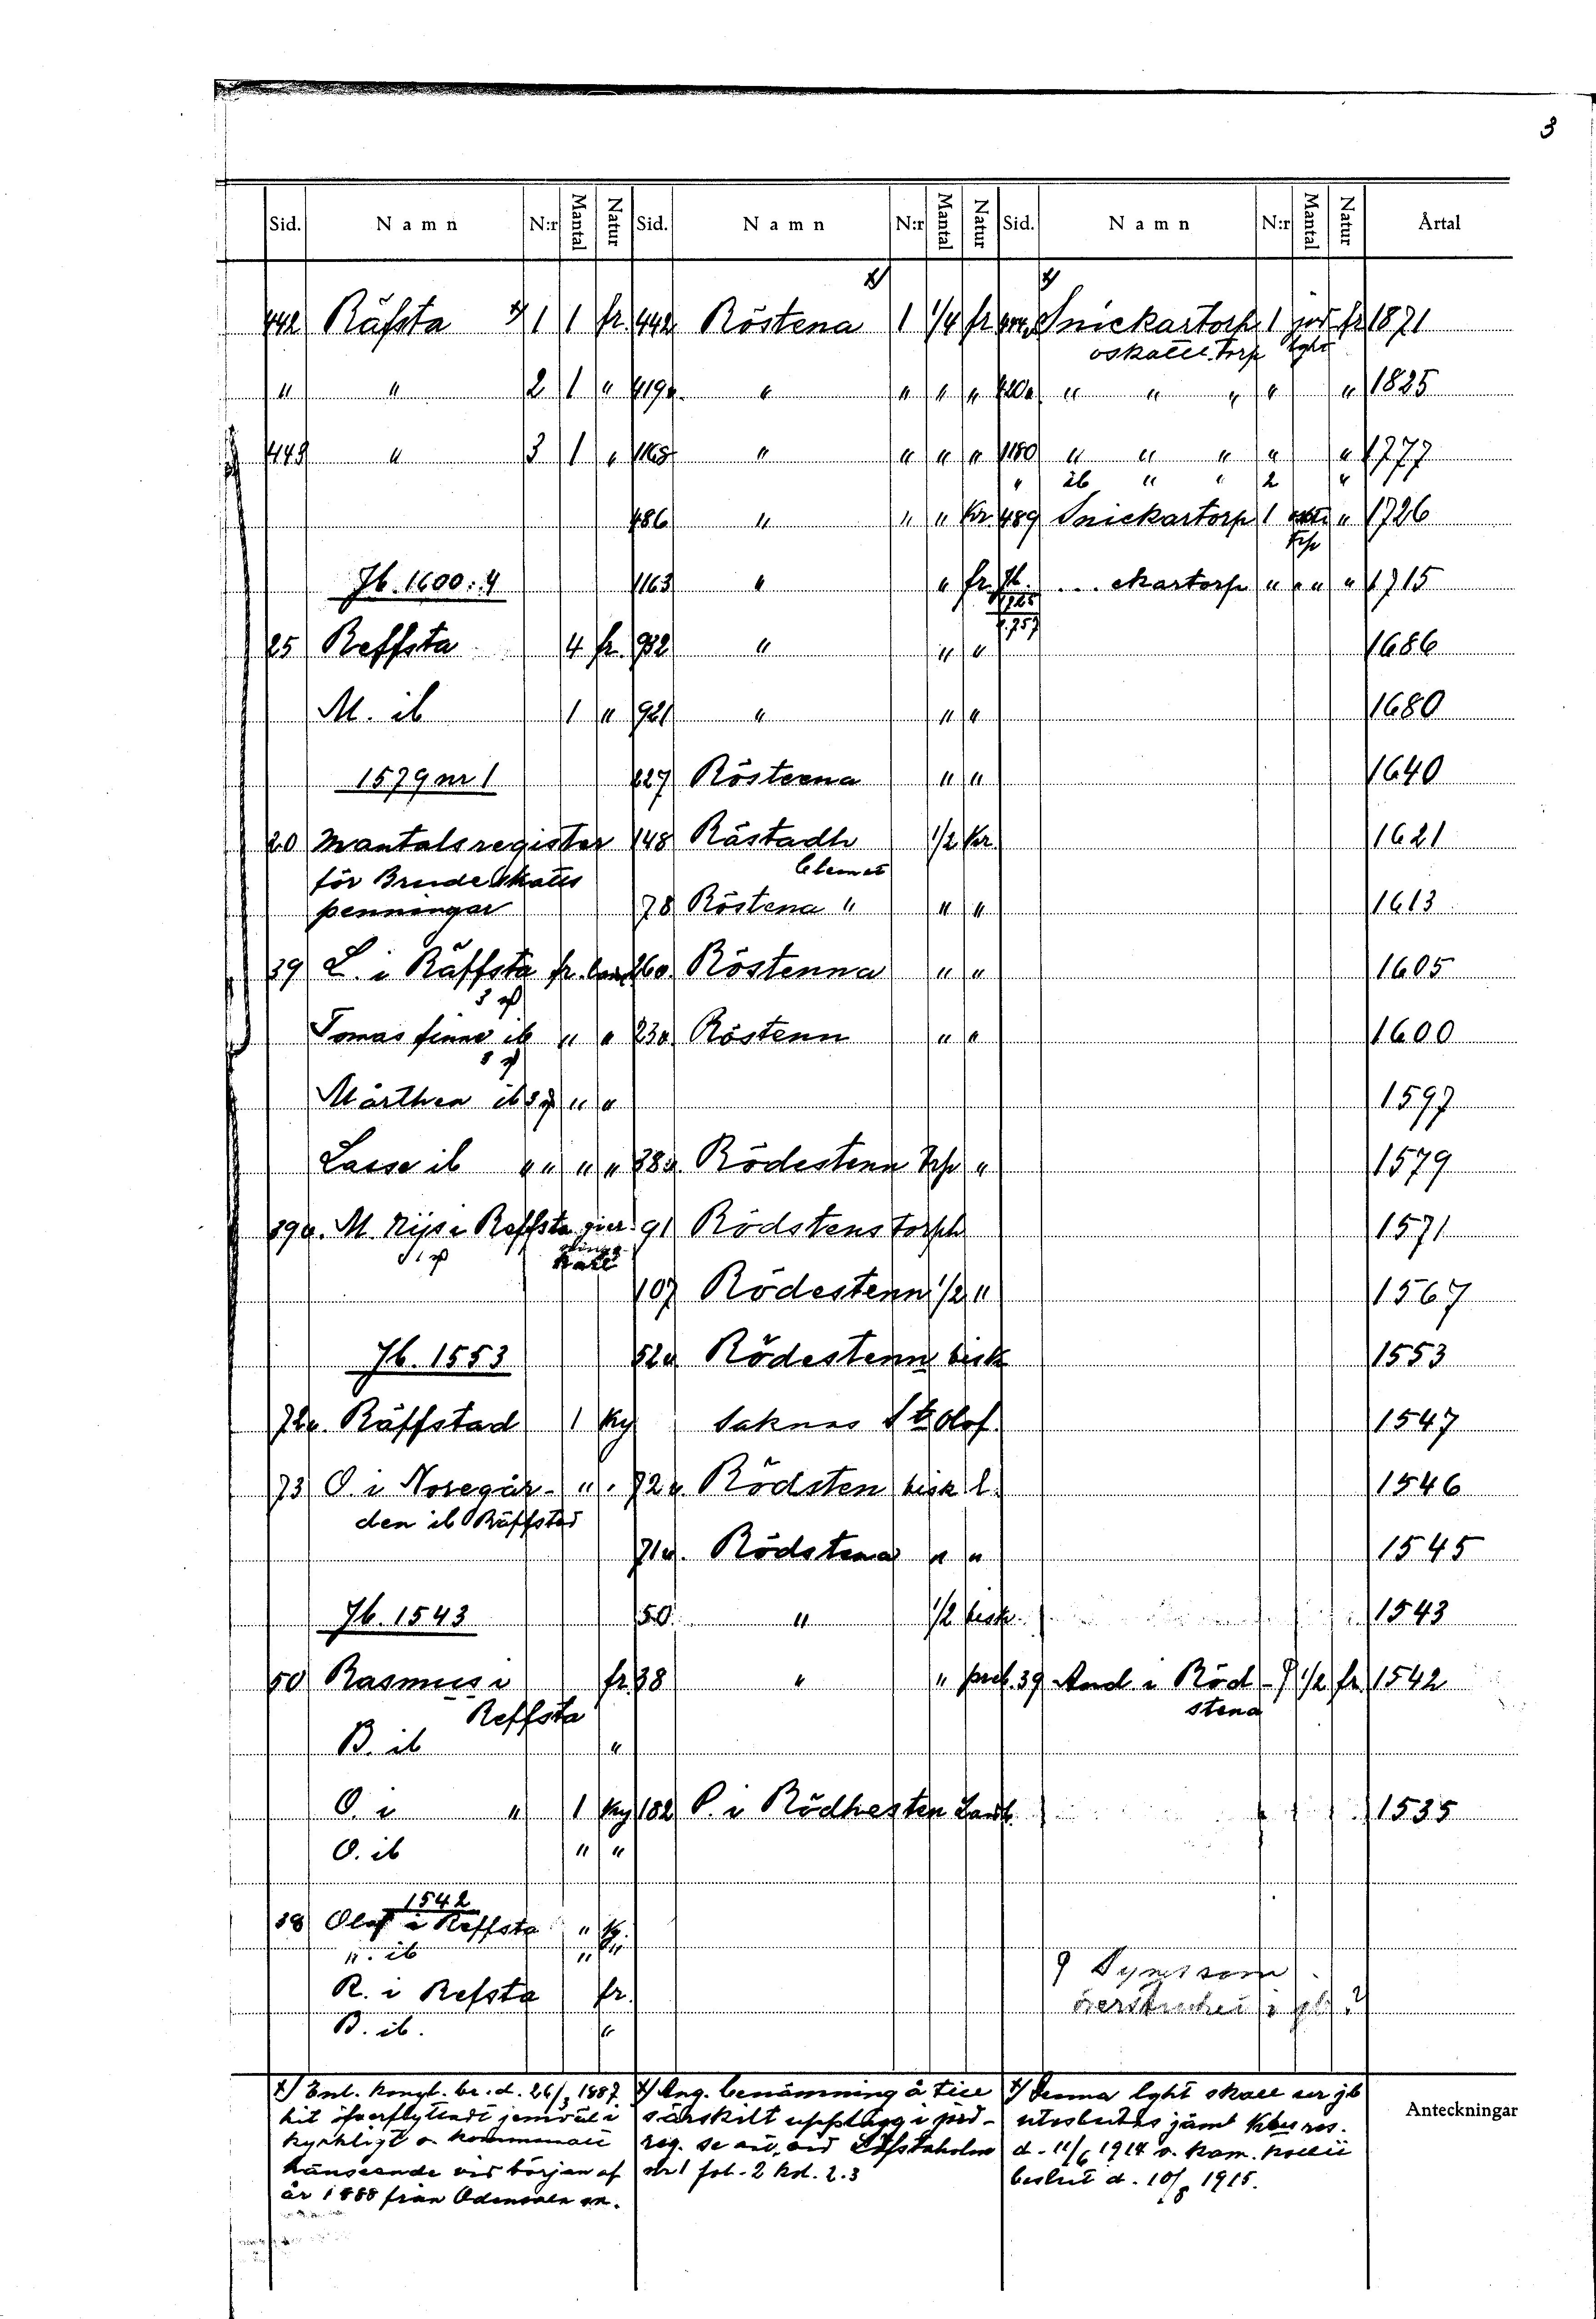 3
Sid. Namn N:r Mantal Natur Sid. Namn N:r Mantal Natur Sid. Namn N:r Mantal Natur Årtal
442 Räfsta x) 1 1 fr. 442 Röstena x) 1 1/4 fr x) Snickartorp 1 jord fr 1871
oskattl. torp lght
" " 2 1 " 419v. " " " " 420v " " " " " 1825
443 " 3 1 " 1168 " " " " 1180 " " " " " 1777
" ib " " 2 "
486 " " " Kr. 489 Snickartorp 1 " 1726
trp
Jb. 1600:4 1163 " " fr. Jb. ... ckartorp " " " " 1715
1725
p. 757
25 Reffsta 4 fr. 932 " " " 1686
M. ib 1 " 921 " " " 1680
1579 nr 1 227 Rösteena " " 1640
20 Mantalsregister 148 Råstadh 1/2 Kr. 1621
för Brudeskatts
penningar 78 Röstena " " " 1613
39 L. i Räffsta fr. 260. Röstenna " " 1605
Tomas finne ib " " 230. Röstenn " " 1600
Mårthen ib " " 1597
Lasse ib " " " " 38v. Rödestenn trp " 1579
39v. M. Rijs i Reffsta 91 Rödstens torph 1571
107 Rödestenn 1/2 " 1567
Jb. 1553 52v Rödestenn bisk 1553
72v. Räffstad 1 Ky Saknas St Olof. 1547
73 O. i Noregår- " " 72v. Rödsten bisk l. 1546
den ib Räffstad
71v. Rödstena " " 1545
Jb. 1543 50. " 1/2 bisk. 1543
50 Rasmus i fr. 38 " " preb. 39 And. i Röd- 9 1/2 fr. 1542
Reffsta stena
B. ib "
O. i " 1 Ky 182 P. i Rödhesten Landb. 1535
O. ib " "
1542
38 Olof i Reffsta " Ky.
n. ib " "
R. i Refsta fr.
B. ib. "
9 Synes som
överstruket i jb.?
x) Enl. Kongl. br. d. 26/3 1887
hit öfverflyttadt jemväl i
kyrkligt o. kommunalt
hänseende vid början af
år 1888 från Odensala sn.
x) Ang. benämning å tice
särskilt upplägg i jord-
reg. se ant. vid Löfstaholm
nr 1 fol. 2 kol. 2.3
x) Denna lght skall ur jb
uteslutas jämt. Kbus res.
d. 11/6 1914 o. Kam. kollii
beslut d. 10/8 1915.
Anteckningar